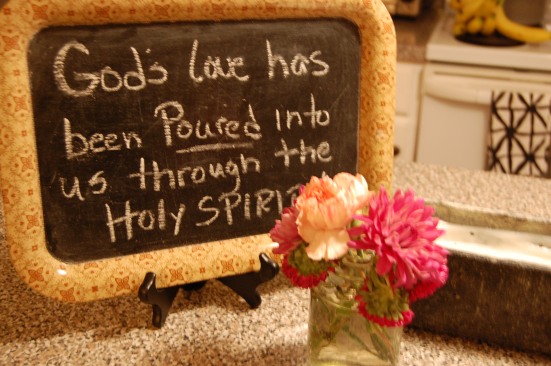 God's love has
been Poured into
us through the
Holy SPIRIT